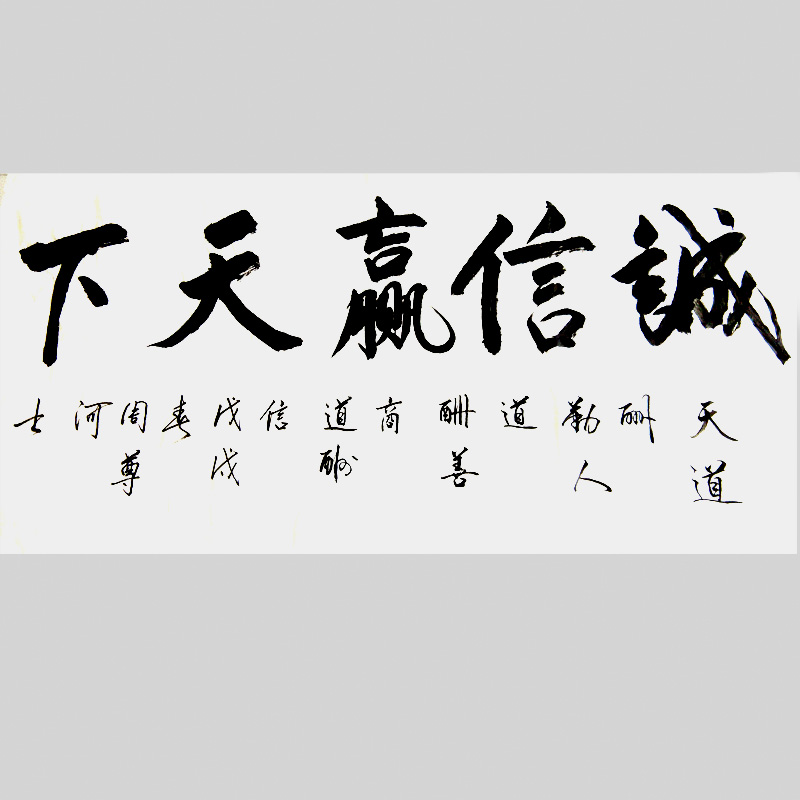 誠信贏天下
天道
酬
勤人
道
酬善
商
道酬
信
戊戌
春
周尊
河
士